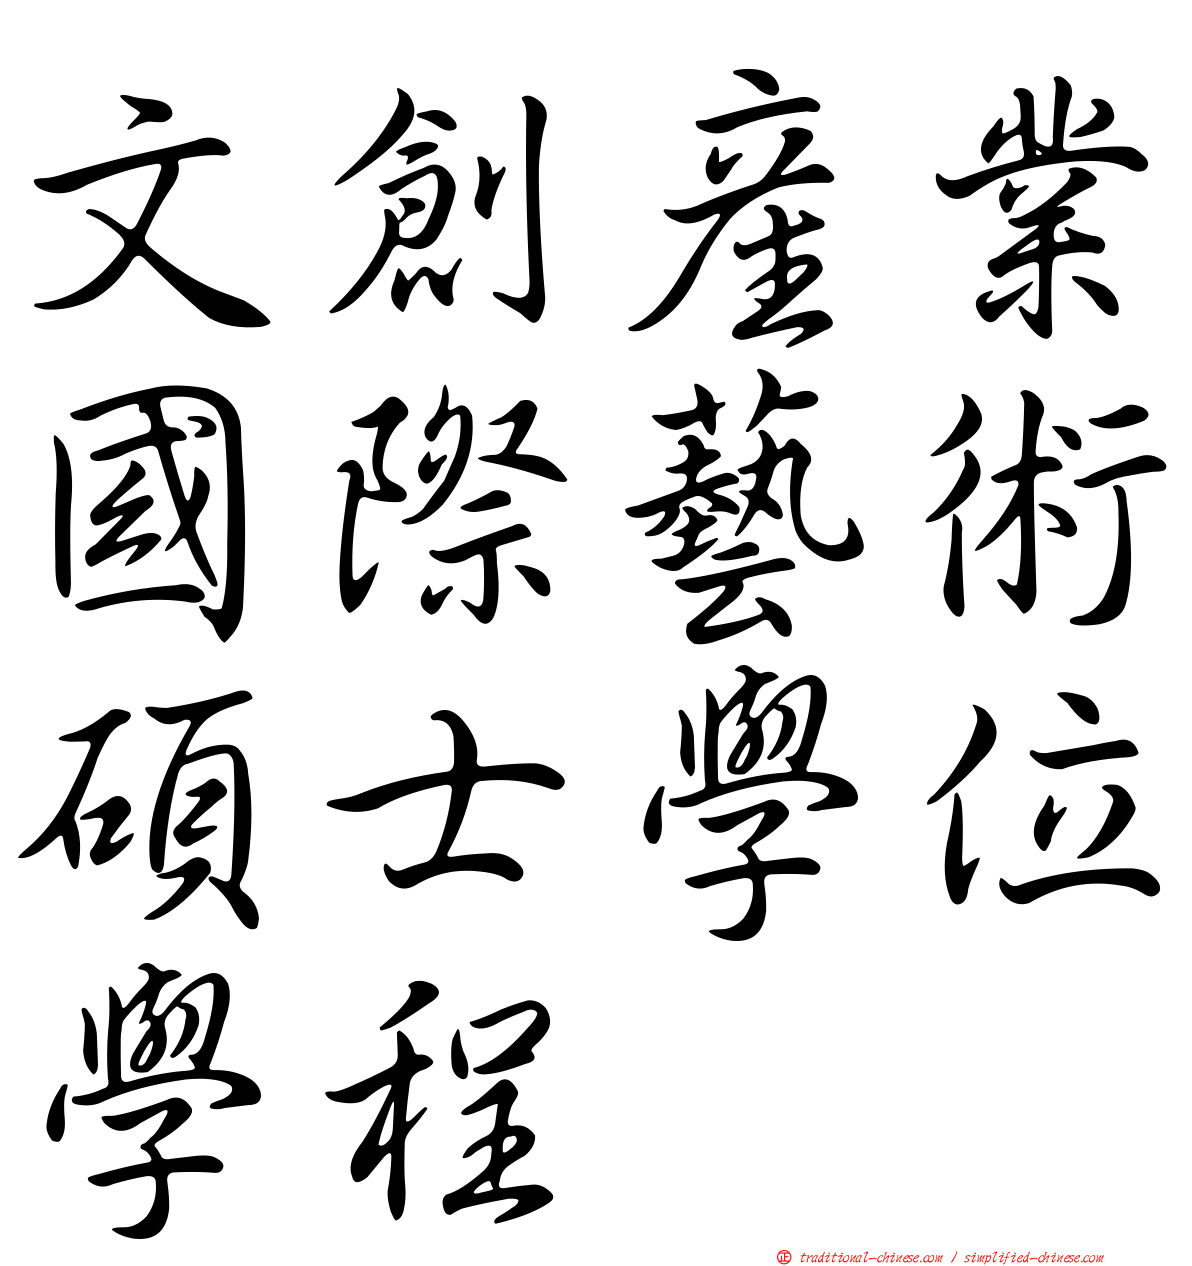 文創產業
國際藝術
碩士學位
學程
正 traditional-chinese.com / simplified-chinese.com